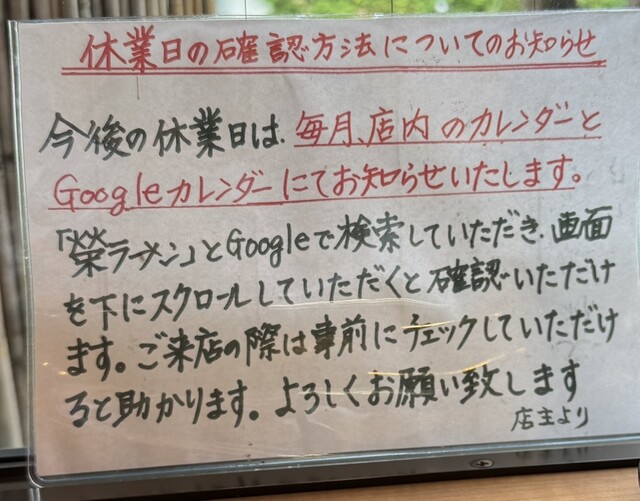 休業日の確認方法についてのお知らせ
今後の休業日は、毎月、店内のカレンダーと
Googleカレンダーにてお知らせいたします。
「榮ラーメン」とGoogleで検索していただき、画面
を下にスクロールしていただくと確認いただけ
ます。ご来店の際は事前にチェックしていただけ
ると助かります。よろしくお願い致します
店主より